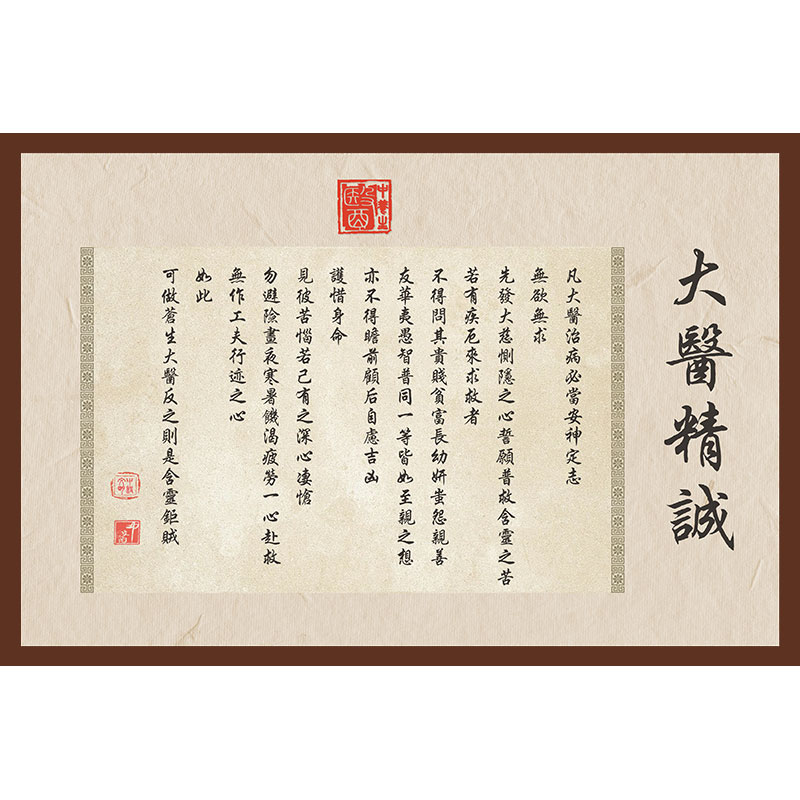 大醫精誠
凡大醫治病必當安神定志
無欲無求
先發大慈惻隱之心誓願普救含靈之苦
若有疾厄來求救者
不得問其貴賤貧富長幼妍蚩怨親善
友華夷愚智普同一等皆如至親之想
亦不得瞻前顧后自慮吉凶
護惜身命
見彼苦惱若己有之深心凄愴
勿避險晝夜寒暑饑渴疲勞一心赴救
無作工夫行迹之心
如此
可做蒼生大醫反之則是含靈鉅賊